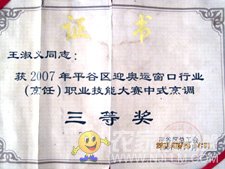 证书
王淑义同志：
获2007年平谷区迎奥运窗口行业
（烹任）职业技能大赛中式烹调
三等奖